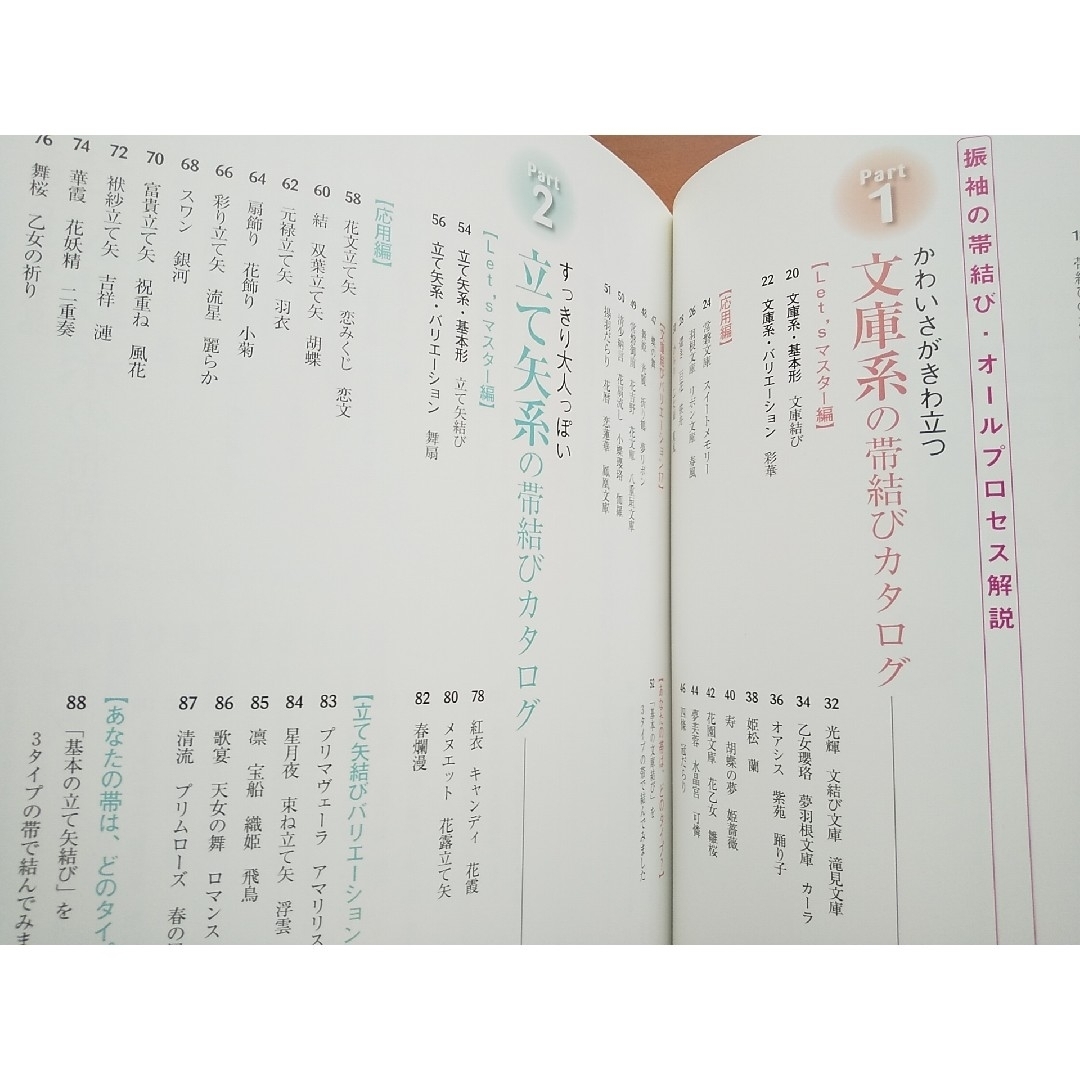 振袖の帯結び・オールプロセス解説
Part 1
かわいさがきわ立つ
文庫系の帯結びカタログ
【Let'sマスター編】
20 文庫系・基本形 文庫結び
22 文庫系・バリエーション 彩華
【応用編】
24 常磐文庫 スイートメモリー
26 羽根文庫 リボン文庫 春風
32 光輝 文結び文庫 滝見文庫
34 乙女瓔珞 夢羽根文庫 カーラ
36 オアシス 紫苑 踊り子
38 姫松 蘭
40 寿 胡蝶の夢 姫薔薇
42 花園文庫 花乙女 雛桜
44 夢芙蓉 水晶宮 可憐
46
48
49
50 清少納言 花扇流し 小鷹瓔珞 伽羅
51 揚羽だらり 花暦 恋蓮華 鳳凰文庫
52 「基本の文庫結び」を
3タイプの帯で結んでみました
Part 2
すっきり大人っぽい
立て矢系の帯結びカタログ
【Let'sマスター編】
54 立て矢系・基本形 立て矢結び
56 立て矢系・バリエーション 舞扇
【応用編】
58 花文立て矢 恋みくじ 恋文
60 結 双葉立て矢 胡蝶
62 元禄立て矢 羽衣
64 扇飾り 花飾り 小菊
66 彩り立て矢 流星 麗らか
68 スワン 銀河
70 富貴立て矢 祝重ね 風花
72 袱紗立て矢 吉祥 漣
74 華霞 花妖精 二重奏
76 舞桜 乙女の祈り
78 紅衣 キャンディ 花霞
80 メヌエット 花露立て矢
82 春爛漫
【立て矢結びバリエーション
83 プリマヴェーラ アマリリス
84 星月夜 束ね立て矢 浮雲
85 凛 宝船 織姫 飛鳥
86 歌宴 天女の舞 ロマンス
87 清流 プリムローズ 春の
【あなたの帯は、どのタイ
88 「基本の立て矢結び」を
3タイプの帯で結んでみま